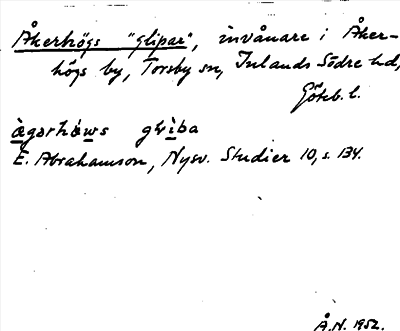 Åkerhögs "glipar", invånare i Åker-
högs by, Torsby sn, Inlands Södre hd,
Göteb. l.
àgərhàws
E. Abrahamson, Nysv. Studier 10, s. 134.
Å.N. 1952.